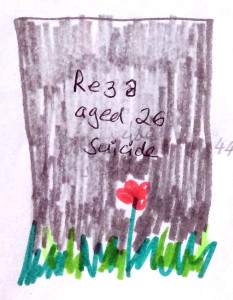 Reza
aged 26
suicide
44